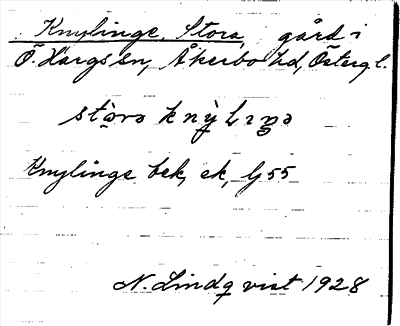 Knylinge, Stora, gård i
Ö. Hargs sn, Åkerbo hd, Österg. l.
stòrə knỳlɩŋə
Knylinge bek, ek, Gj 55
N. Lindqvist 1928